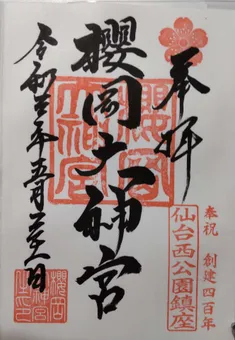 奉拝
奉祝 創建四百年
仙台西公園鎮座
櫻岡大神宮
櫻岡大神宮
令和三年五月日